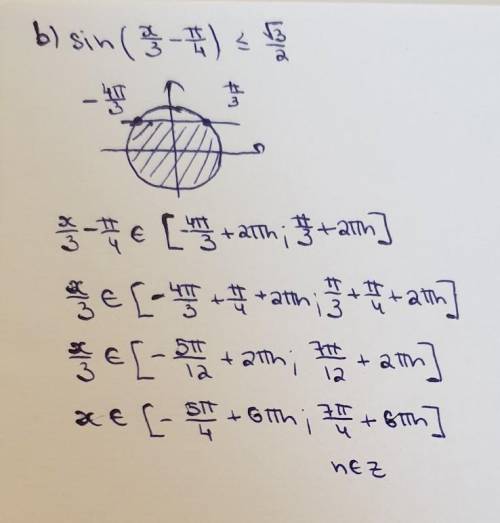 b) sin(x/3 - π/4) ≤ √3/2
-4π/3 π/3
x/3 - π/4 ∈ [-4π/3 + 2πn; π/3 + 2πn]
x/3 ∈ [-4π/3 + π/4 + 2πn; π/3 + π/4 + 2πn]
x/3 ∈ [-5π/12 + 2πn; 7π/12 + 2πn]
x ∈ [-5π/4 + 6πn; 7π/4 + 6πn]
n ∈ z